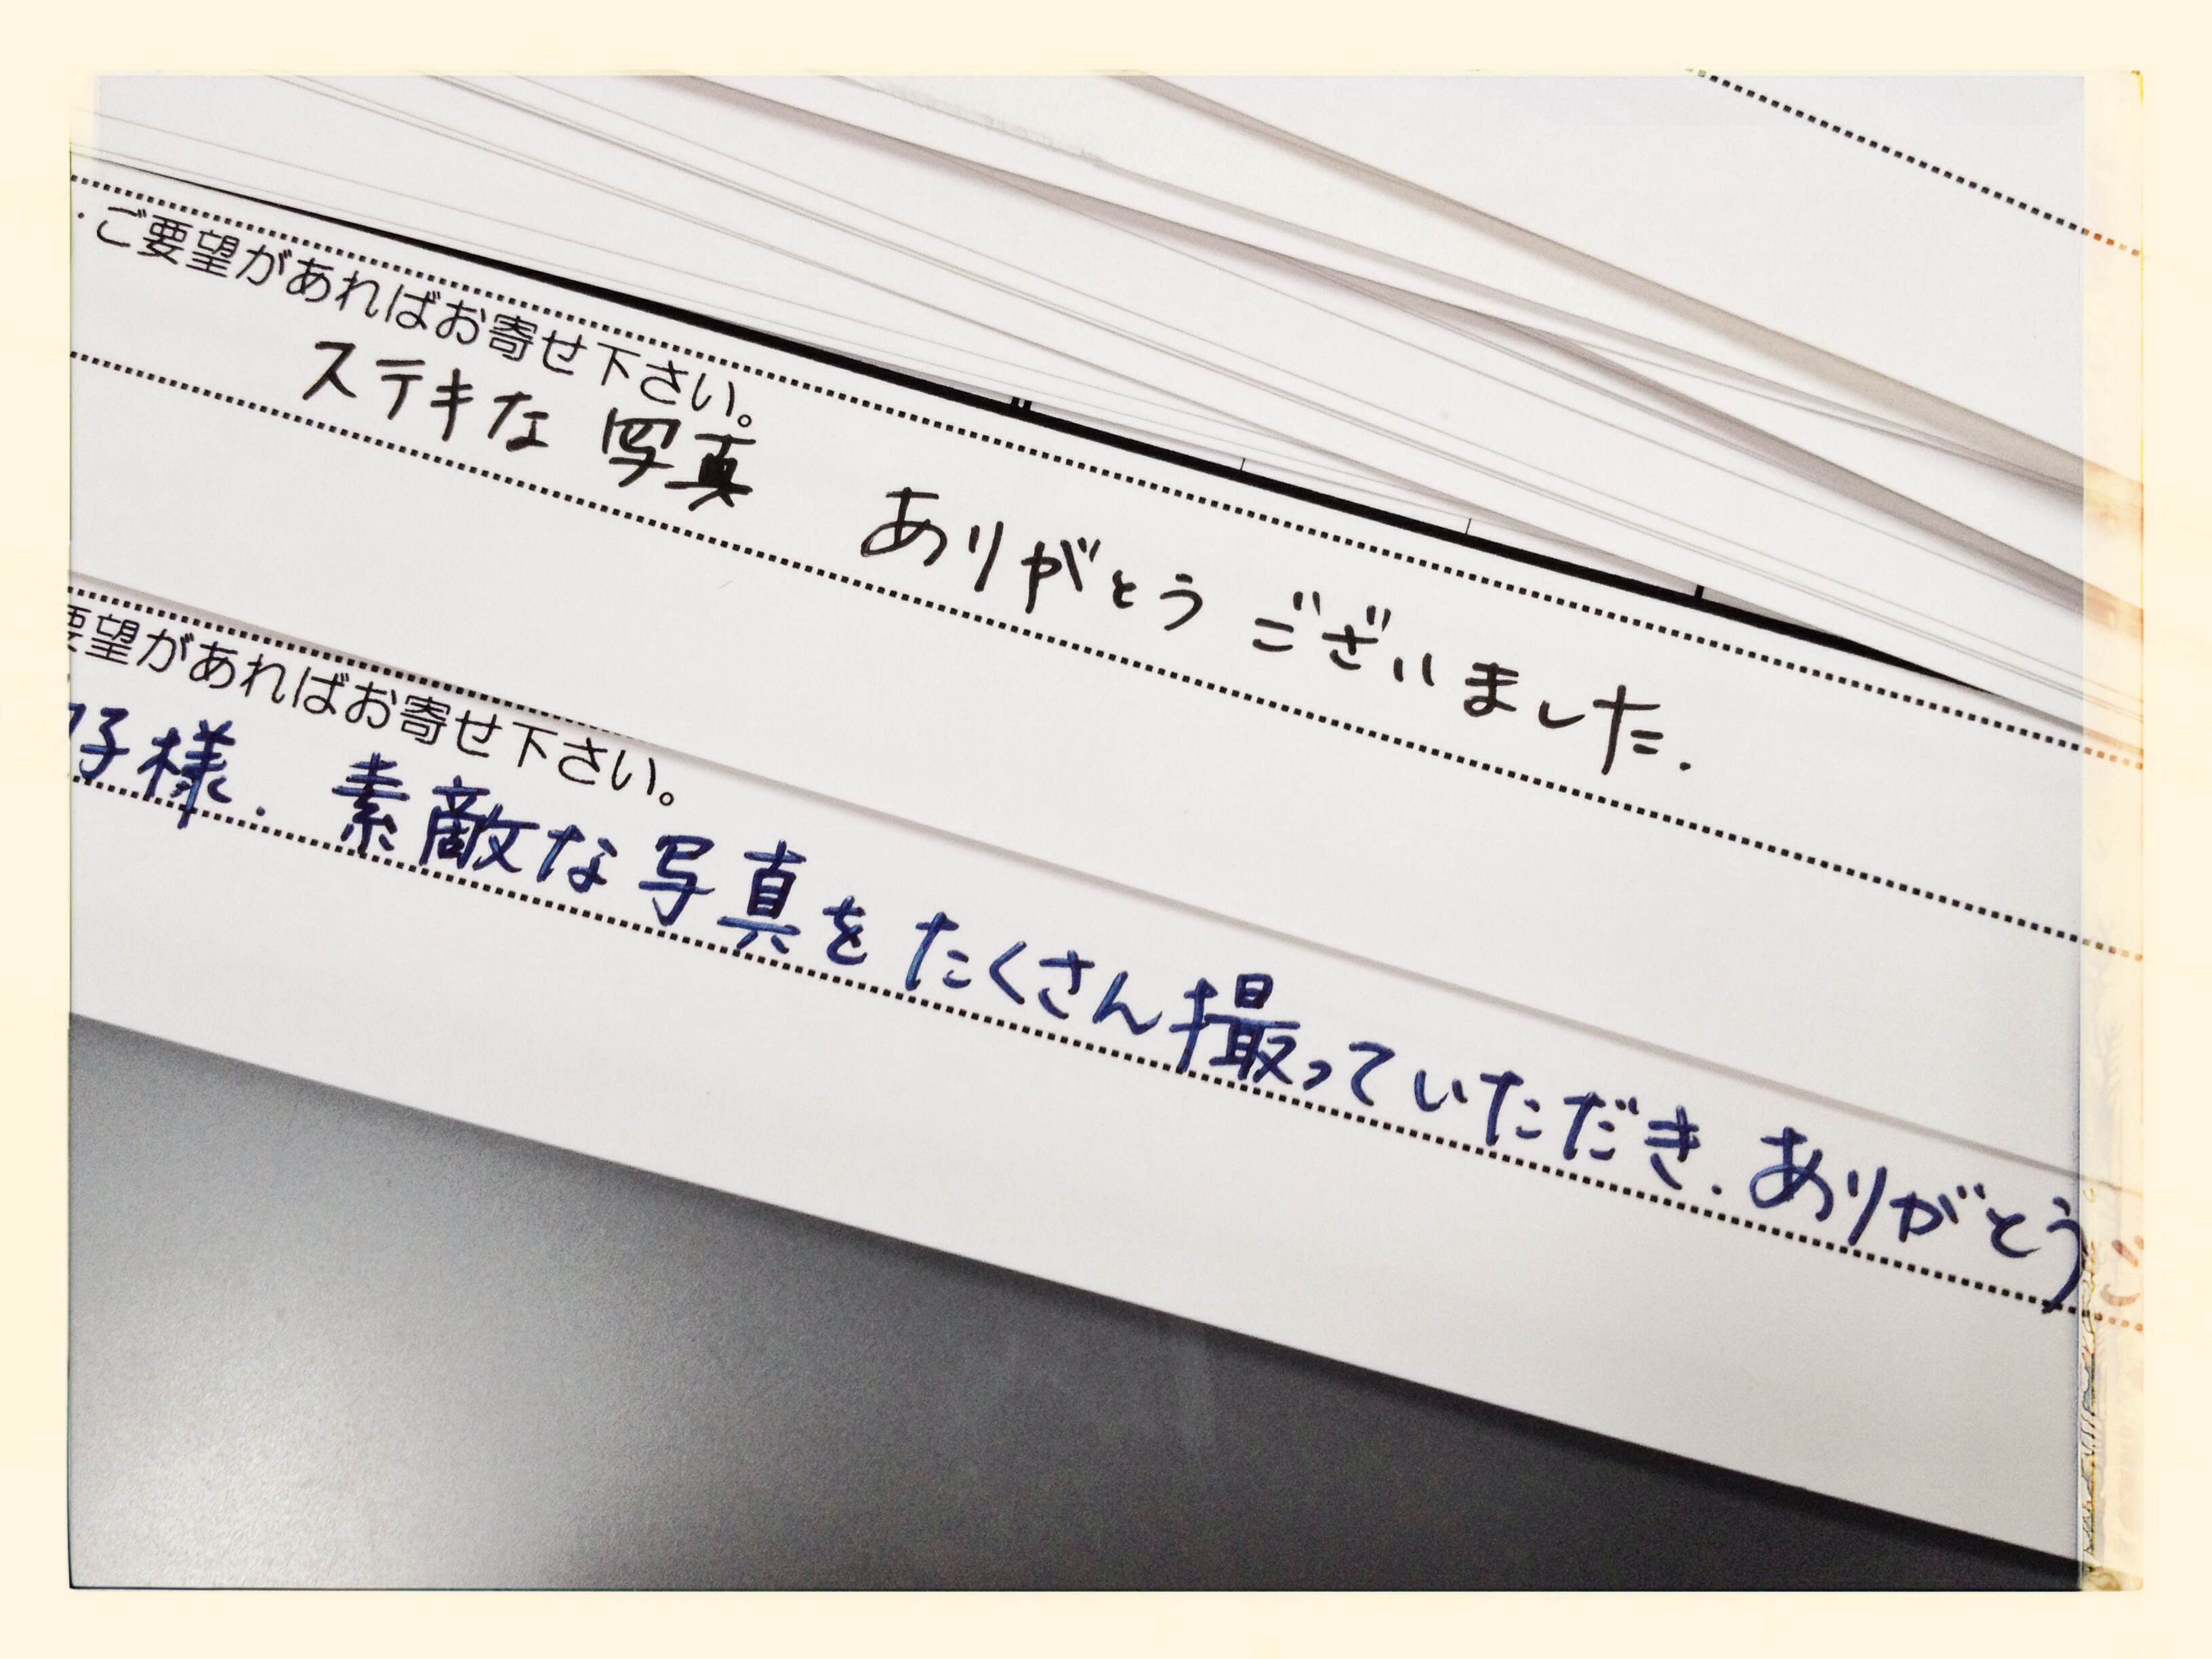 ・ご要望があればお寄せ下さい。
ステキな写真 ありがとうございました.
要望があればお寄せ下さい。
子様. 素敵な写真をたくさん撮っていただき. ありがとうご